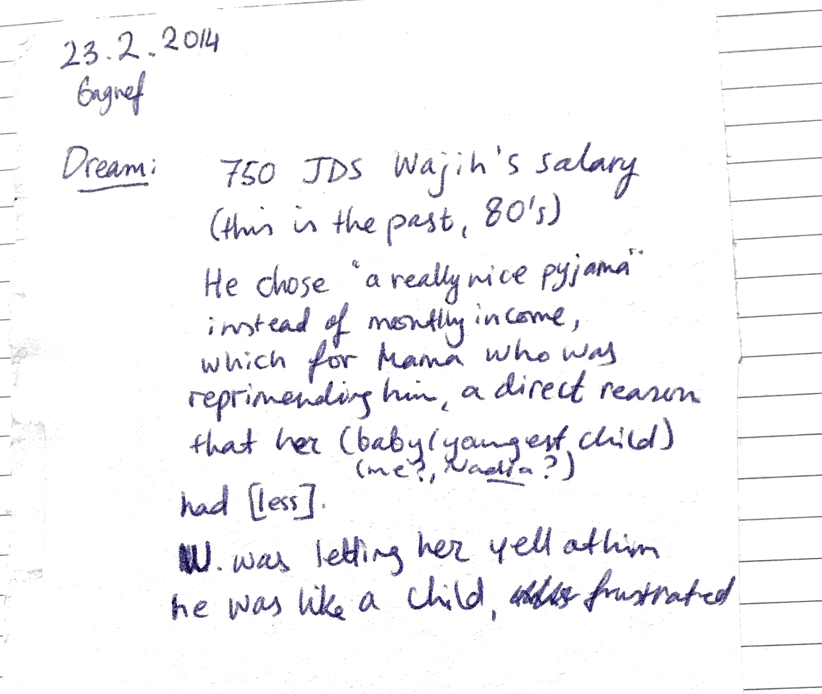 23.2.2014
Gagnef
Dream: 750 JDS Wajih's salary
(this is the past, 80's)
He chose "a really nice pyjama"
instead of monthly income,
which for Mama who was
reprimending him, a direct reason
that her (baby/youngest child)
(me?, Nadia?)
had [less].
W. was letting her yell at him
he was like a child, frustrated